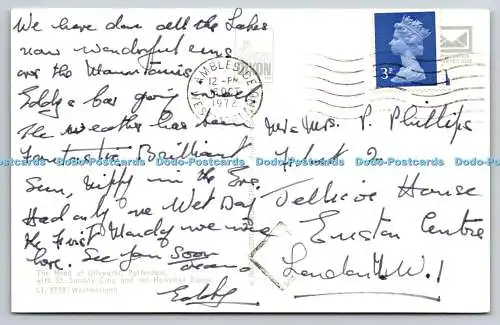 We have done all the Lakes
now wonderful runs
over the Mountains
Eddys bar going
The weather has been
Fantastic Brilliant
Sun, nippy in the Eve.
Had only one Wet Day
the first Monday we were
here. See you Soon
Eddy
The Head of Ullswater, Patterdale,
with St. Sunday Crag and the Helvellyn Range
Westmorland
AMBLESIDE
12 - PM
1972
3P
Mr & Mrs. P. Phillips
Flat 2
Jellicoe House
Euston Centre
London N.W.1
Dado-Postcards Dado-Postcards Dado-Postcards Dado-Postcards Dado-Postcards Dado-Postcards